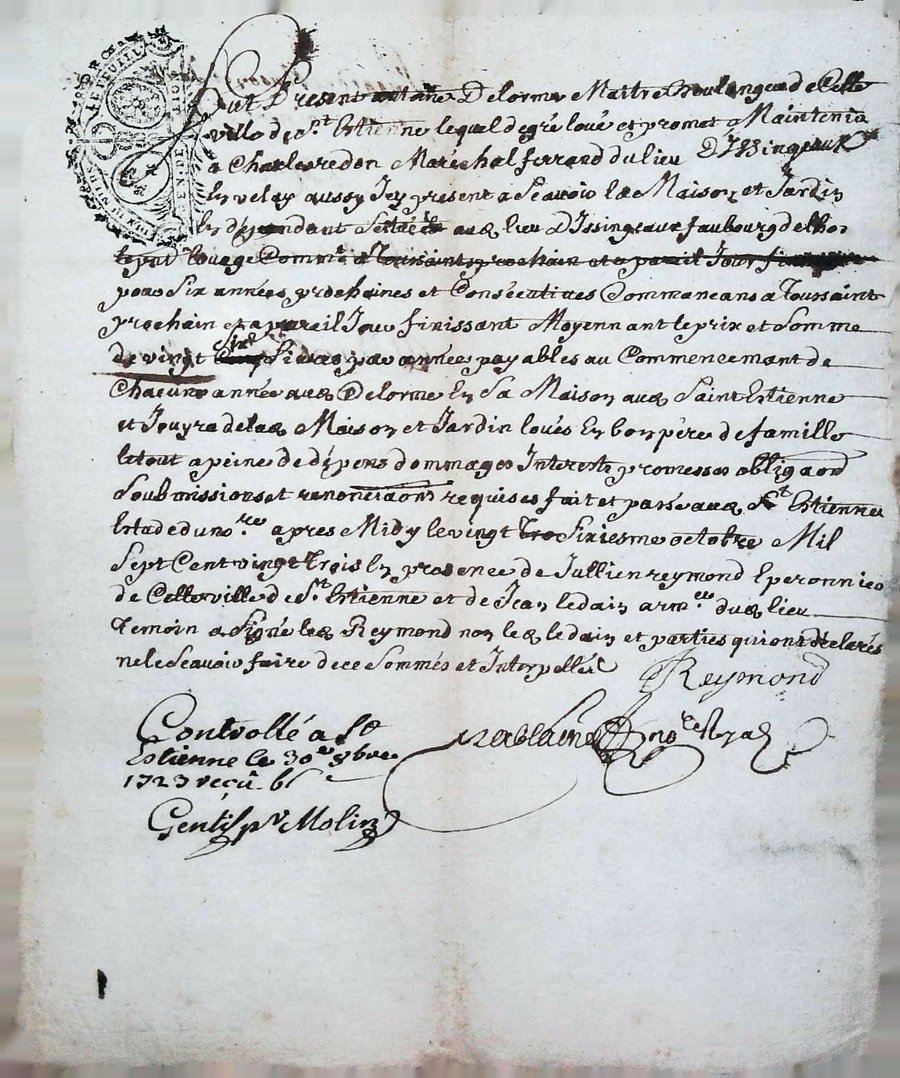 Fut Present antoine Delorme Maitre Boulanger de Cette
ville de st Estienne lequel de gré loue et promet Maintenir
a Charles redon Maréchal ferrand du lieu D'Issingeaux
En velay aussy Jcy present a Scavoir la Maison et Jardin
En dépendant Scitués aud lieu D'Issingeaux faubourg
le pnt louage Comme a Toussaints prochain et a pareil Jour
pour Six années prochaines et Consécutives Commancans a Toussaint
prochain et a pareil Jour finissant Moyennant le prix et Somme
de vingt Six livres par année payables au Commencemant de
Chacune année aud Delorme En Sa Maison aud Saint Estienne
et Jouyra delad Maison et Jardin loués En bon père de famille
le tout a peine de dépens dommages Interests promesses obligaons
Soubmissions et renonciaons requises fait et passé aud St Estienne
Estude du nore apres Midy le vingt Sixiesme octobre Mil
Sept Cent vingt trois En presence de Jullien reymond Eperonnier
de Cette ville de St Estienne et de Jean ledain armeur dud lieu
Temoin a Signé led Reymond non led ledain et parties qui ont déclarés
ne le Scavoir faire de ce Sommés et Interpellés
Reymond
nore Royal
Controllé a St
Estienne le 30e 8bre
1723 reçu
Gentil pr Molin